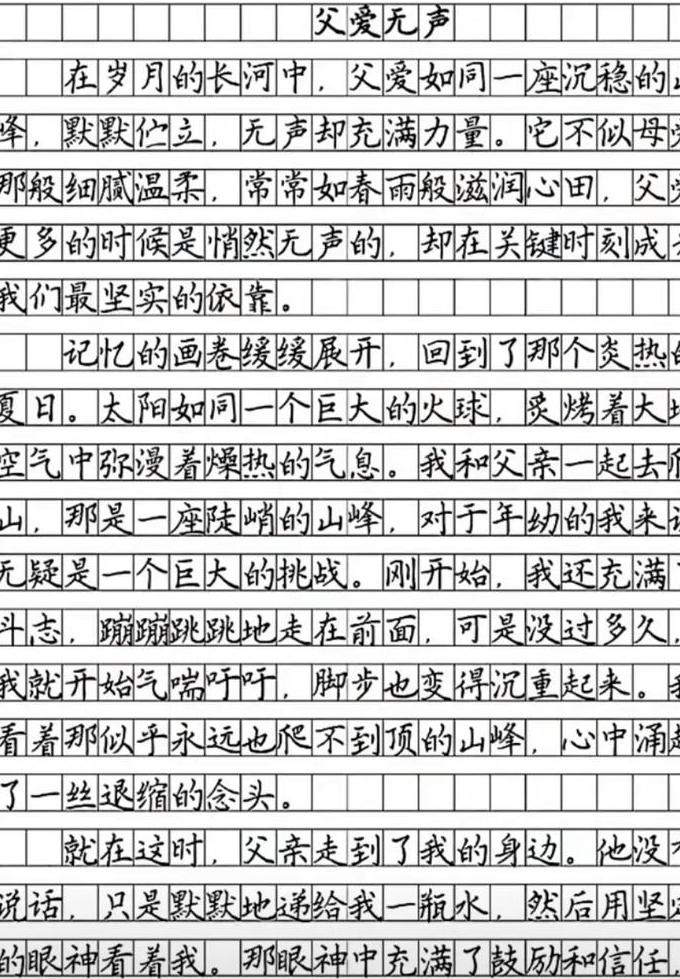 父爱无声
在岁月的长河中，父爱如同一座沉稳的山
峰，默默伫立，无声却充满力量。它不似母爱
那般细腻温柔，常常如春雨般滋润心田，父爱
更多的时候是悄然无声的，却在关键时刻成为
我们最坚实的依靠。
记忆的画卷缓缓展开，回到了那个炎热的
夏日。太阳如同一个巨大的火球，炙烤着大地
空气中弥漫着燥热的气息。我和父亲一起去爬
山，那是一座陡峭的山峰，对于年幼的我来说
无疑是一个巨大的挑战。刚开始，我还充满了
斗志，蹦蹦跳跳地走在前面，可是没过多久，
我就开始气喘吁吁，脚步也变得沉重起来。我
看着那似乎永远也爬不到顶的山峰，心中涌起
了一丝退缩的念头。
就在这时，父亲走到了我的身边。他没有
说话，只是默默地递给我一瓶水，然后用坚定
的眼神看着我。那眼神中充满了鼓励和信任，